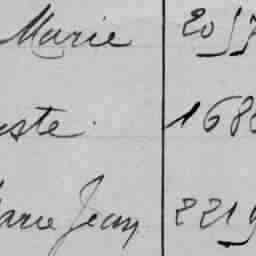 Marie 2057
este. 168
Marie Jean 2219